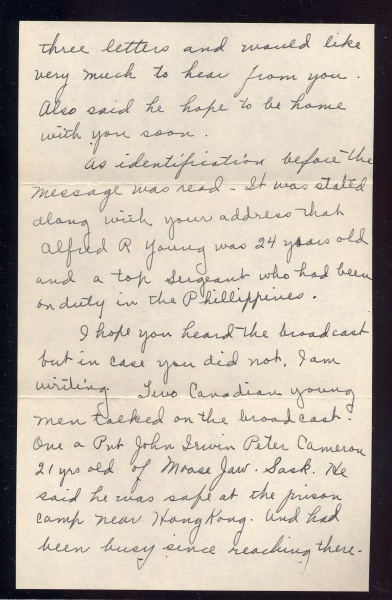 three letters and would like
very much to hear from you.
Also said he hope to be home
with you soon.
As identification before the
message was read - It was stated
along with your address that
Alfred R Young was 24 years old
and a top sergeant who had been
on duty in the Phillippines.
I hope you heard the broadcast
but in case you did not, I am
writing. Two Canadian young
men talked on the broadcast.
One a Pvt John Irwin Peter Cameron
21 yrs old of Moose Jaw. Sask. He
said he was safe at the prison
camp near Hong Kong. And had
been busy since reaching there.